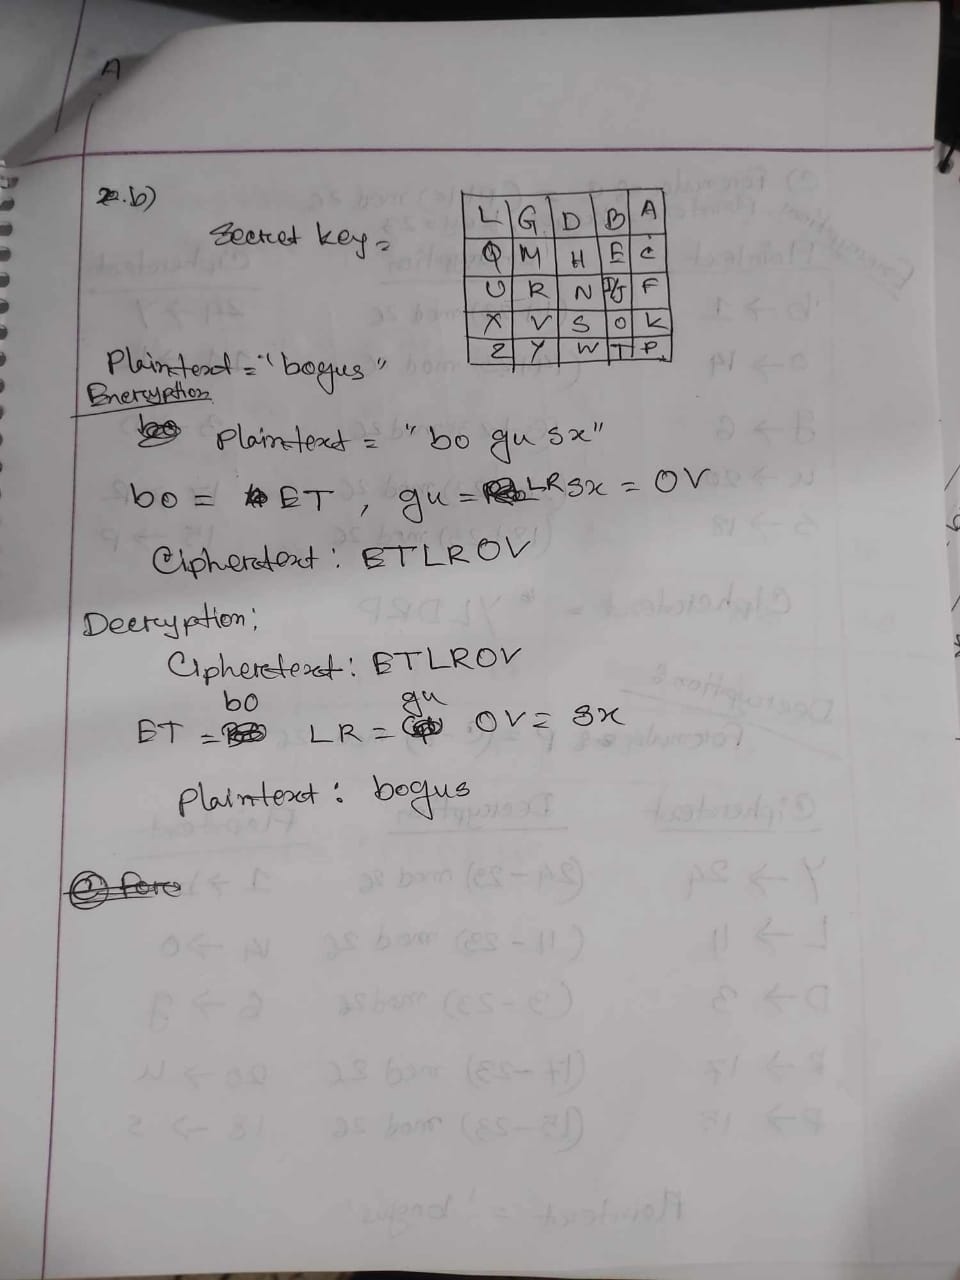 A
2.b)
Secret key =
L G D B A
Q M H E C
U R N I/J F
X V S O K
Z Y W T P
Plaintext = "bogus"
Encryption
Plaintext = "bo gu sx"
bo = ET, gu = LR sx = OV
Ciphertext: ETLROV
Decryption:
Ciphertext: ETLROV
bo gu
ET = LR = OV = sx
Plaintext: bogus